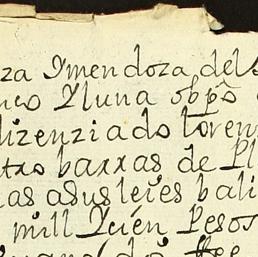 za Ymendoza del
nco Yluna obpo
lizenziado loren
txo baxxas de Pl
as asus leies bali
mill Yçien Pesos